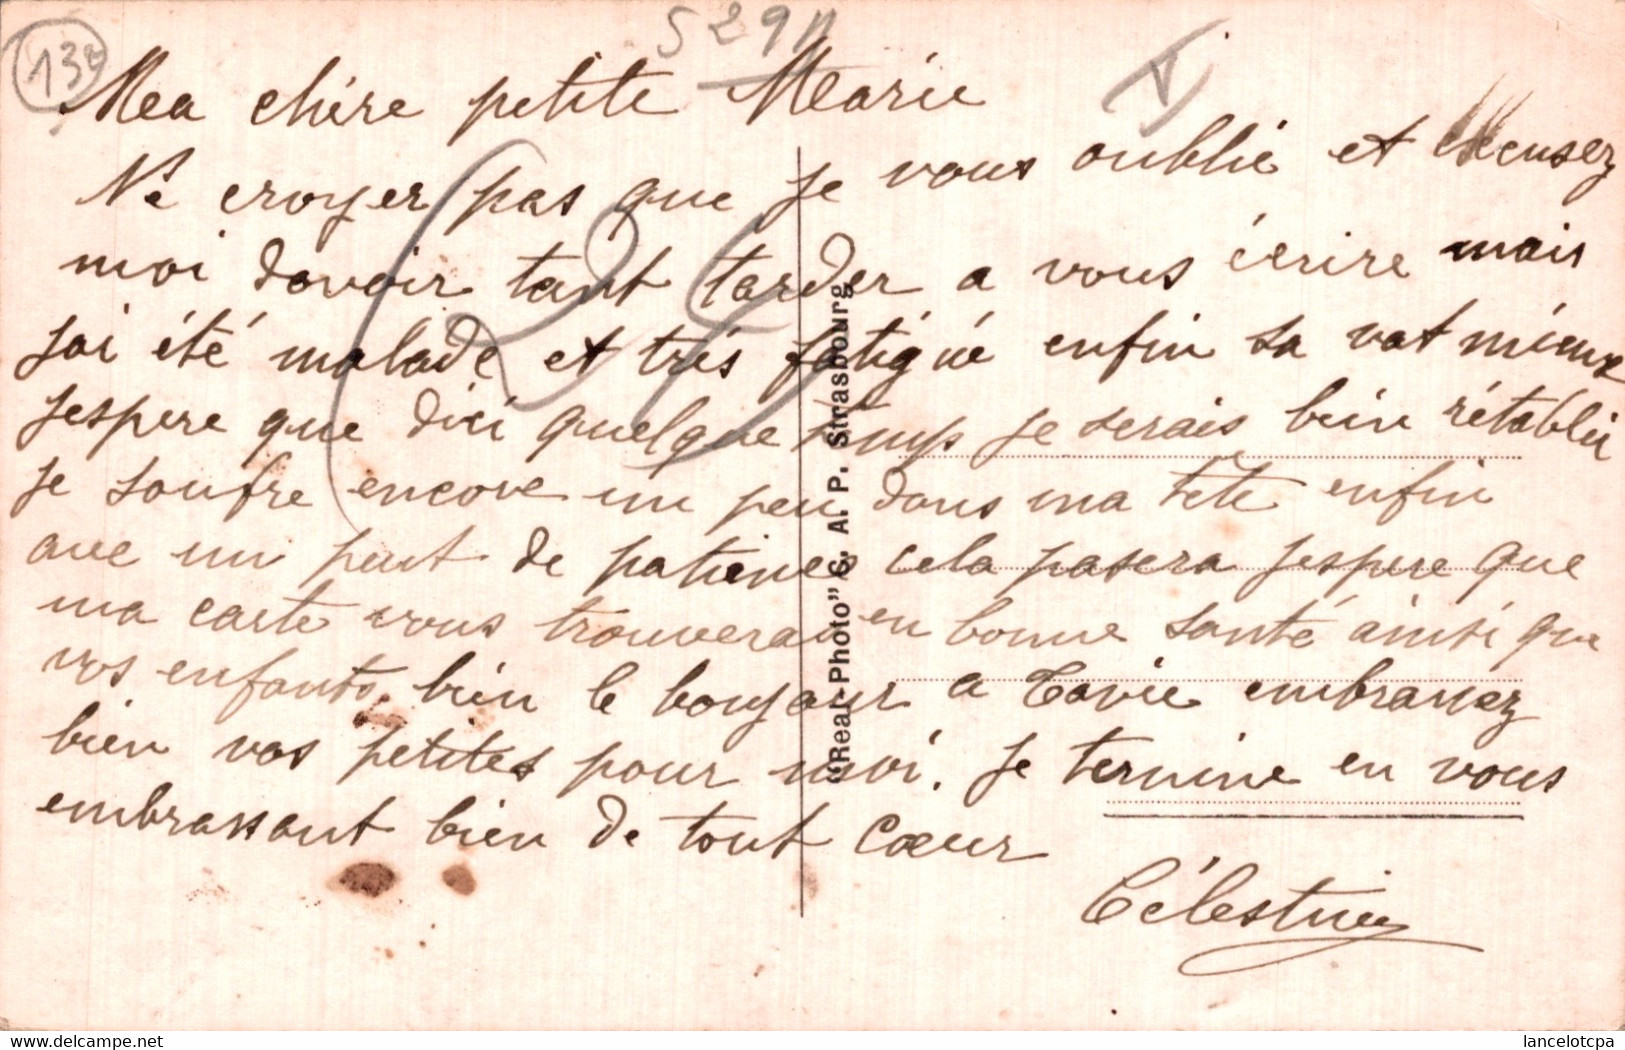 139
529n
V
25
Mea chère petite Marie
Ne croyer pas que je vous oublie et excusez
moi davoir tant tarder a vous écrire mais
jai été malade et très fatigué enfin sa vat mieux
jespere que dici quelque temps je serais bien rétablir
je soufre encore un peu dans ma tete enfin
avec un peut de patience cela pasera jespere que
ma carte vous trouveras en bonne santé ainsi que
vos enfants. bien le bonjour a Tavie embrassez
bien vos petites pour moi. je termine en vous
embrassant bien de tout cœur
Célestine
"Real-Photo" C. A. P. Strasbourg
delcampe.net
lancelotcpa